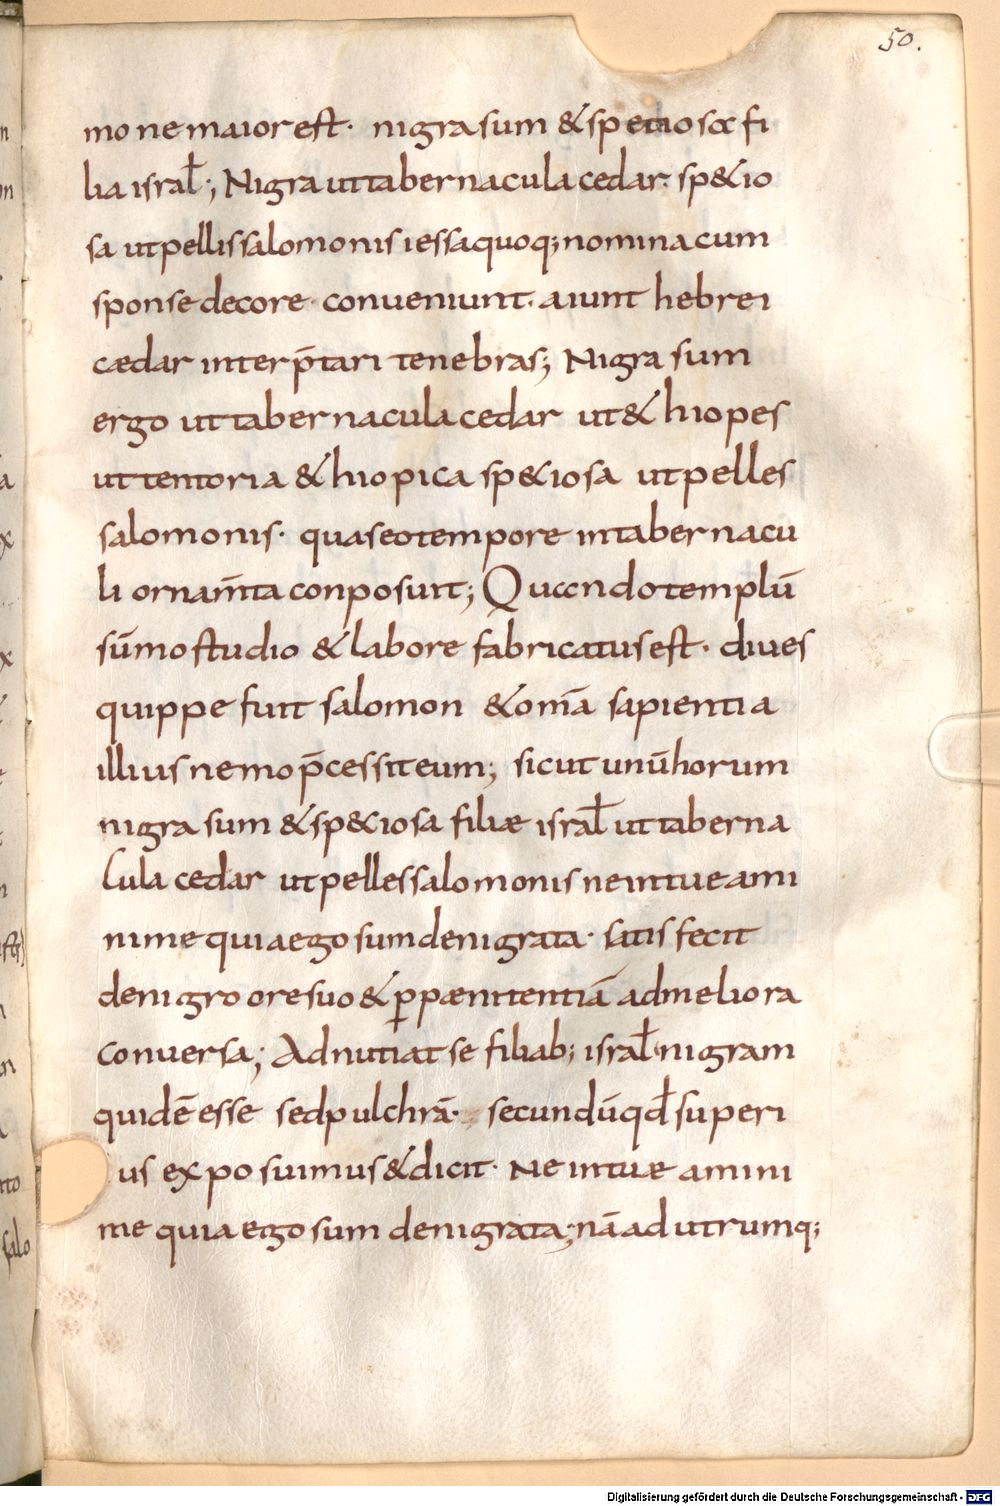 50.
mone maior est· nigra sum & speciosa fi
lia israł; Nigra ut tabernacula cedar· sp&io
sa ut pellis salomonis iessa quoq; nomina cum
sponse decore· conueniunt· aiunt hebrei
cædar interp̄tari tenebras; Nigra sum
ergo ut tabernacula cedar ut &hiopes
ut tentoria &hiopica sp&iosa ut pelles
salomonis· quas eo tempore in tabernacu
li ornam̄ta conposuit; Quando templū
sūmo studio & labore fabricatus est· diues
quippe fuit salomon & om̄ā sapientia
illius nemo p̄cessit eum; sicut unū horum
nigra sum & sp&iosa filiæ israł ut taberna
cula cedar ut pelles salomonis ne intueami
ni me quia ego sum denigrata· satis fecit
denigro ore suo & ꝑ pænitentiā ad meliora
conuersa; Adnutiat se filiab; israł nigram
quidē esse sed pulchrā· secundū qđ superi
us exposuimus & dicit· Ne intueamini
me quia ego sum denigrata; nā ad utrumq;
Digitalisierung gefördert durch die Deutsche Forschungsgemeinschaft - DFG